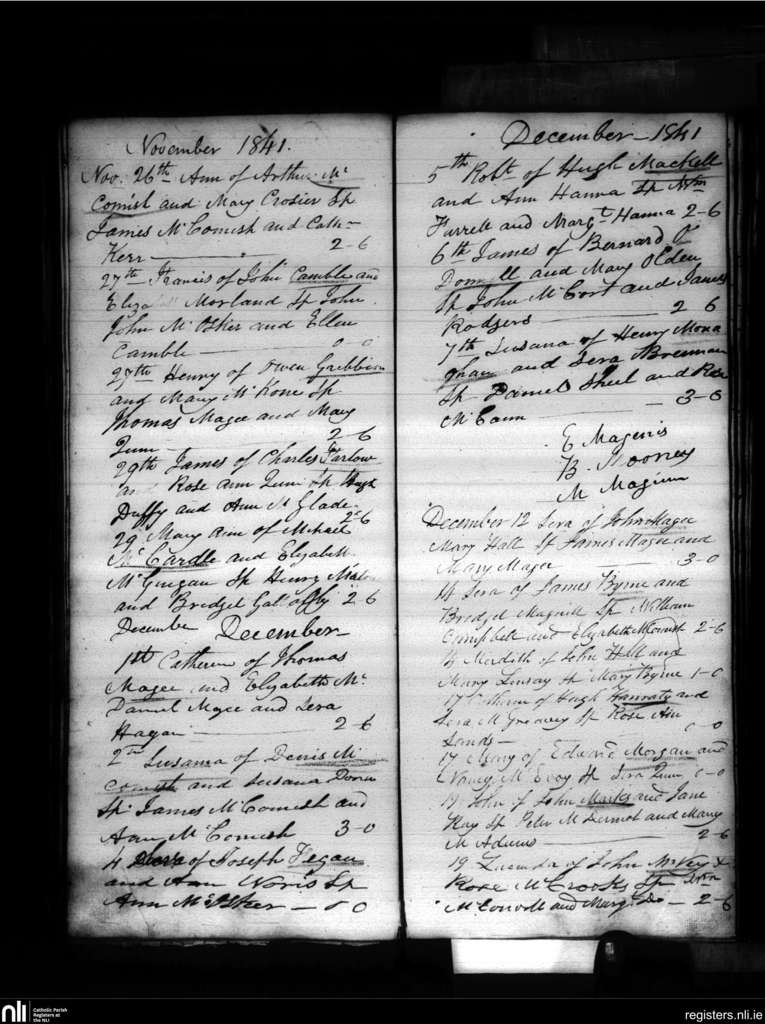 November 1841.
Nov. 26th Ann of Arthur Mc
Comish and Mary Crosier Sp
James McComish and Cath-
Kerr — 2-6
27th Francis of John Camble and
Morland Sp John
John McOsker and Ellen
Camble — 0 0
27th Henry of Owen Gribbin
and Mary McKone Sp
Thomas Magee and Mary
Quin — 2-6
29th James of Charles Farlow
Rose ann Quin Sp Hugh
Duffy and Ann McGlade
2-6
29 Mary Ann of Michael
McCardle and Elizabeth
McGuigan Sp Henry
and Bridget 2 6
December December—
1st Catherine of Thomas
Magee and Elizabeth Mc
Daniel Magee and Sera
Hagan — 2-6
2nd Susanna of Denis Mc
Comish and Susana
Sp James McComish and
Ann McComish 3-0
4 of Joseph Fegan
and Ann Noris Sp
Ann McOsker — 0 0
December—1841
5th Robt of Hugh Mackell
and Ann Hanna Sp Wm
Farrell and Margt Hanna 2-6
6th James of Bernard O
Donnell and Mary Olden
Sp John McCort and James
Rodgers — 2 6
7th Susana of Henry Mona
ghan and Sera Brennan
Sp Daniel Sheel and Rose
McCann — 3-0
E Magenis
B. Mooney
M Maginn
December 12 Sera of John Magee
Mary Hall Sp James Magee and
Mary Magee — 3-0
14 Sera of James Byrne and
Bridget Sp William
Campbell and Elizabeth McComish 2-6
Merdith of John Hill and
Mary Linsay Sp Mary Byrne 1-0
17 Catherine of Hugh Hanraty and
Sera McGreavey Sp Rose Ann
Sands — 0-0
17 of Edward Morgan and
Nancy McEvoy Sp Sera Quin 0-0
19 John of John Marks and Jane
Kay Sp Peter McDermot and Mary
McAdams — 2-6
19 of John McVey &
Rose McCrooks Sp
McConvill and Marg. Do — 2-6
nli
Catholic Parish
Registers at
the NLI
registers.nli.ie